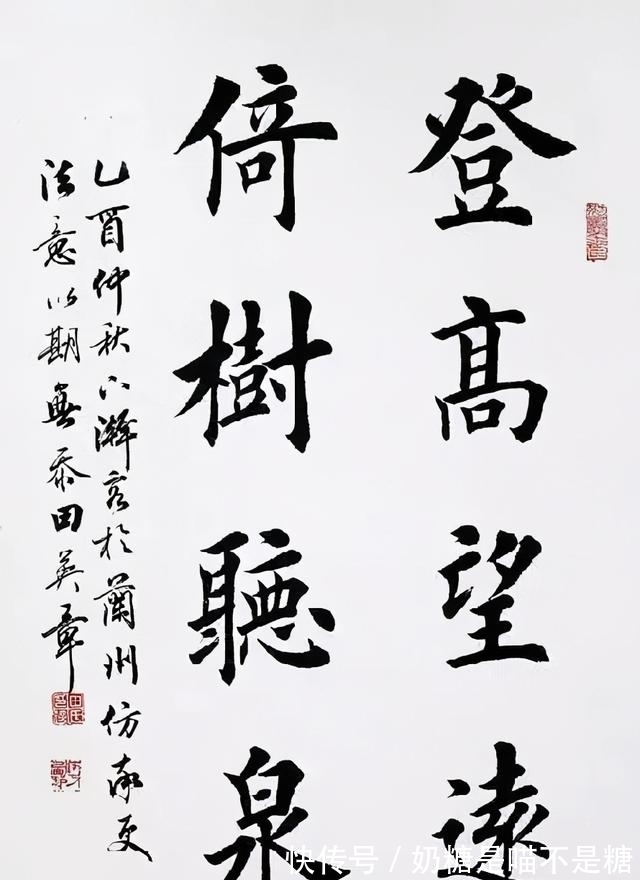 登髙望遠
倚樹聽泉
乙酉仲秋下澣客於蘭州仿率更
法意以期無忝田英章
快传号 / 奶糖是喵不是糖